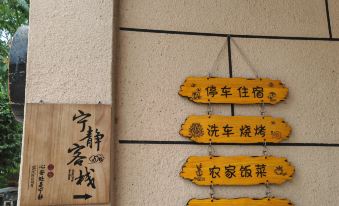 宁静
客栈
停车住宿
洗车烧烤
农家饭菜